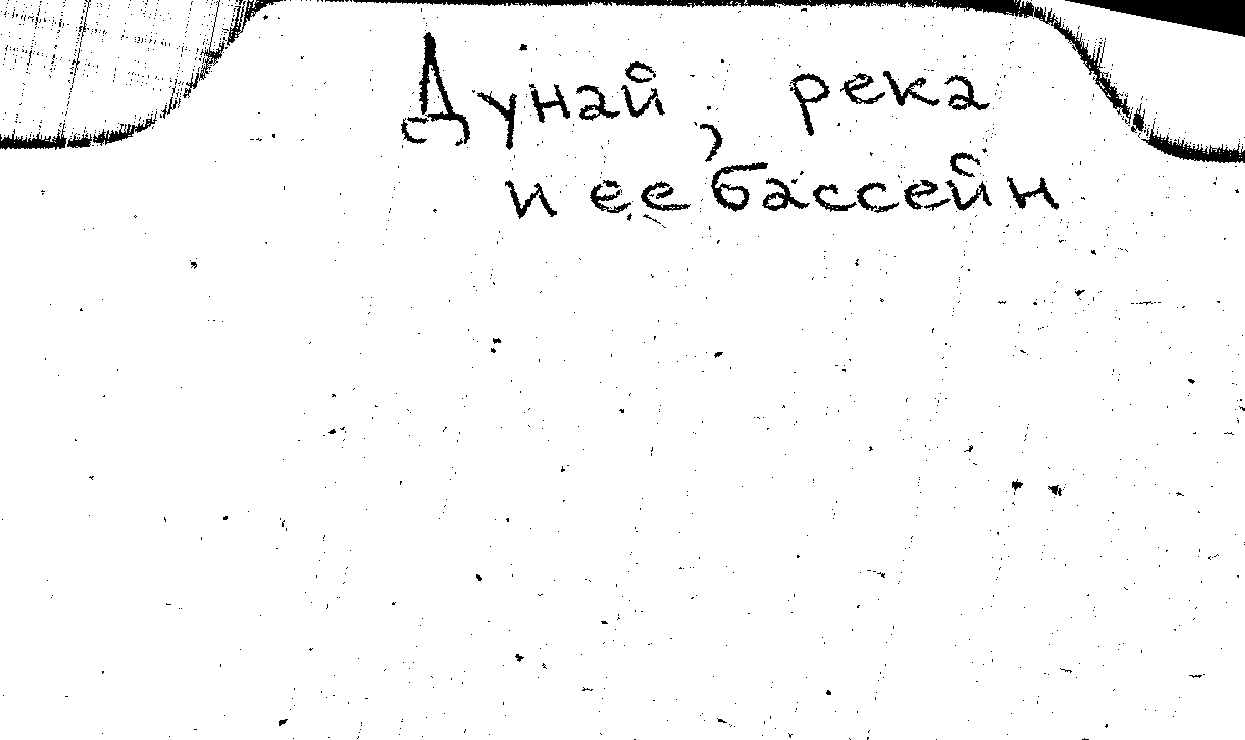 Дунай, река
и ее бассейн